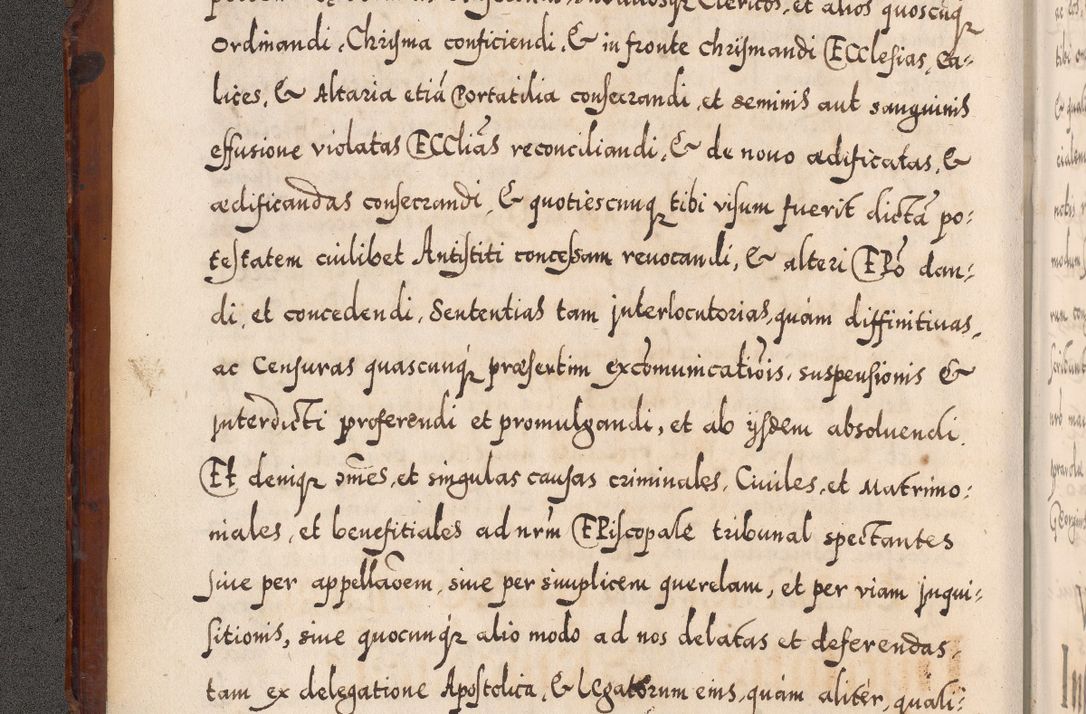 Clericos, et alios quoscuq̃
Ordinandi, Chrisma conficiendi, & in fronte chrismandi ECClesias, Ca-
lices, & Altaria etiá Portatilia consecrandi, et seminis aut sanguinis
effusione violatas ECCliãs reconciliandi, & de nouo ædificatas, &
ædificandas consecrandi, & quotiescunq tibi visum fuerit dictã po:
testatem cuilibet Antistiti concessam reuocandi, & alteri EPõ dan:
di, et concedendi, Sententias tam interlocutorias, quám diffinitiuas,
ac Censuras quascunq́ præsertim excõmunicatiõis, suspensionis &
interdicti proferendi et promulgandi, et ab ijsdem absoluendi.
Et deniq omẽs, et singulas causas criminales, Ciuiles, et Matrimo:
niales, et benefitiales ad nrm̃ EPiscopale tribunal spectantes
siue per appellaõem, siue per simplicem querelam, et per viam inqui:
sitionis, siue quocunq́ alio modo ad nos delatas et deferendas,
tam ex delegatione Apostolica, & Legatorum eius, quám alitér, quali: